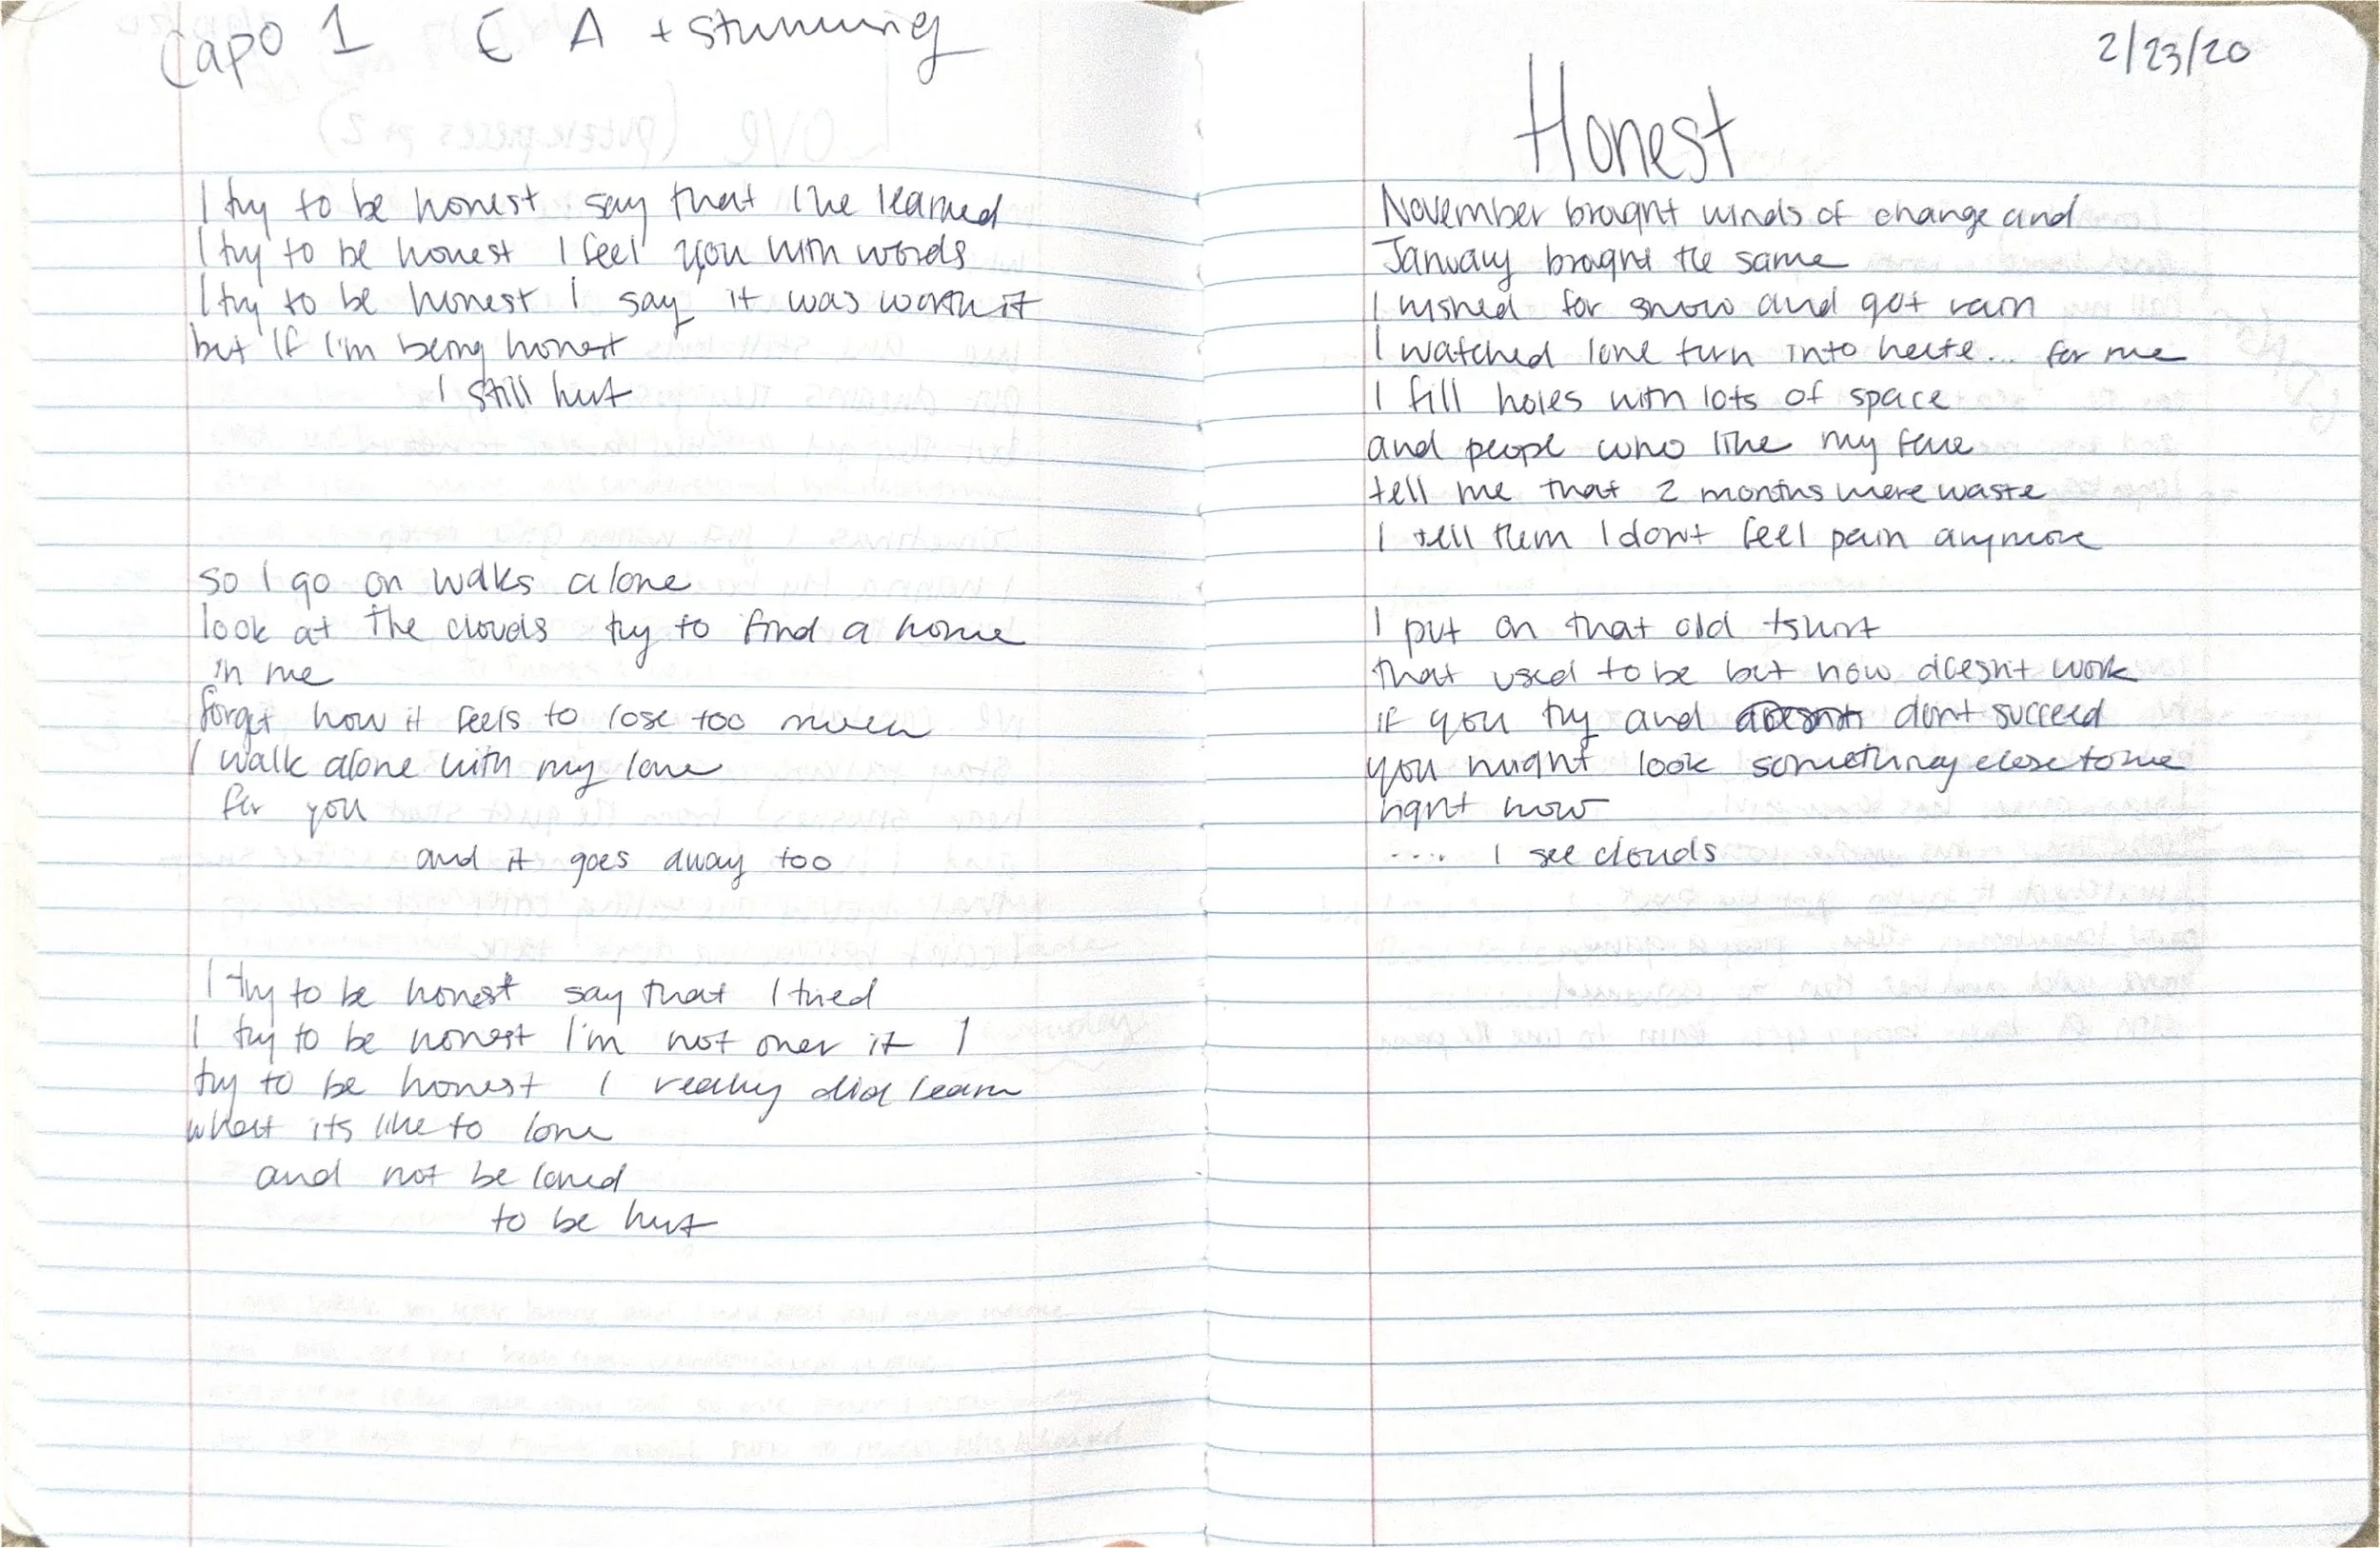 Capo 1 E A + strumming
I try to be honest say that I've learned
I try to be honest I feel you with words
I try to be honest I say it was worth it
but if I'm being honest
I still hurt
so I go on walks alone
look at the clouds try to find a home
in me
forget how it feels to lose too much
I walk alone with my love
for you
and it goes away too
I try to be honest say that I tried
I try to be honest I'm not over it I
try to be honest I really did learn
what its like to love
and not be loved
to be hurt
2/23/20
Honest
November brought winds of change and
January brought the same
I wished for snow and got rain
I watched love turn into hate... for me
I fill holes with lots of space
and people who like my face
tell me that 2 months were waste
I tell them I dont feel pain anymore
I put on that old tshirt
that used to be but now doesn't work
if you try and doesnt dont succeed
you might look something close to me
right now
.... I see clouds